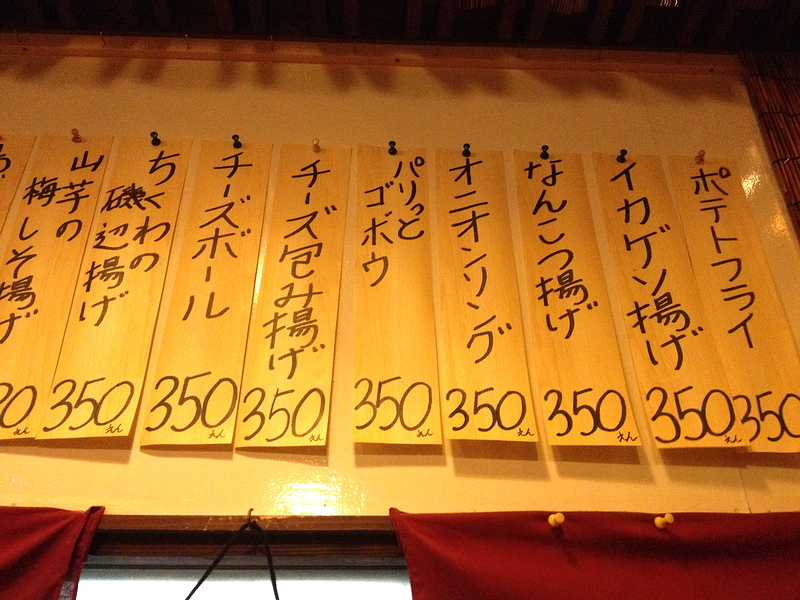 ポテトフライ
350
イカゲソ揚げ
350えん
なんこつ揚げ
350えん
オニオンリング
350えん
パリっと
ゴボウ
350えん
チーズ包み揚げ
350えん
チーズボール
350えん
ちくわの
磯辺揚げ
350えん
山芋の
梅しそ揚げ
えん